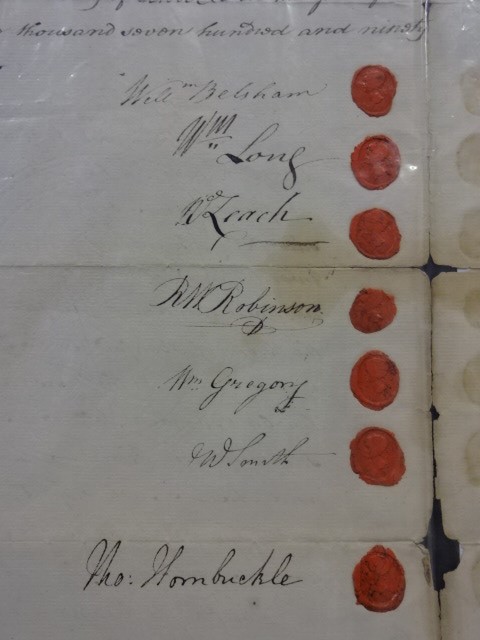 thousand seven hundred and ninety
Willm Belsham
Wm Long
Rd Leach
R W Robinson
Wm Gregory
W Smith
Tho: Hornbuckle